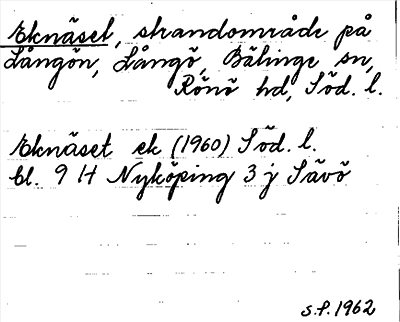 Eknäset, strandområde på
Långön, Långö, Bälinge sn,
Rönö hd, Söd. l.
Eknäset ek (1960) Söd. l.
bl. 9 H Nyköping 3 j Sävö
s.f. 1962